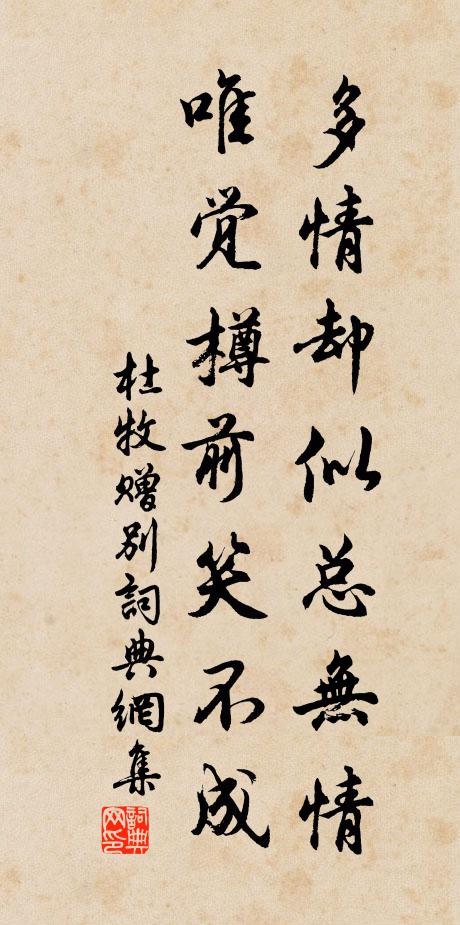 多情却似总無情
唯觉樽前笑不成
杜牧赠别詞典網集
詞典网印